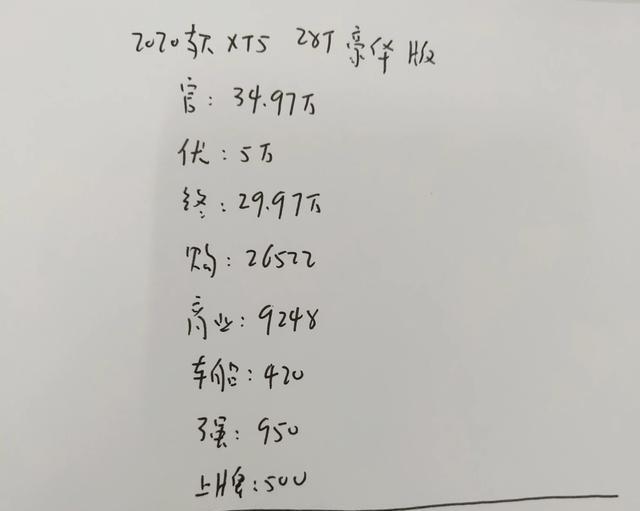 2020款 XT5 28T 豪华版
官: 34.97万
优: 5万
终: 29.97万
购: 26522
商业: 9248
车船: 420
强: 950
上牌: 500